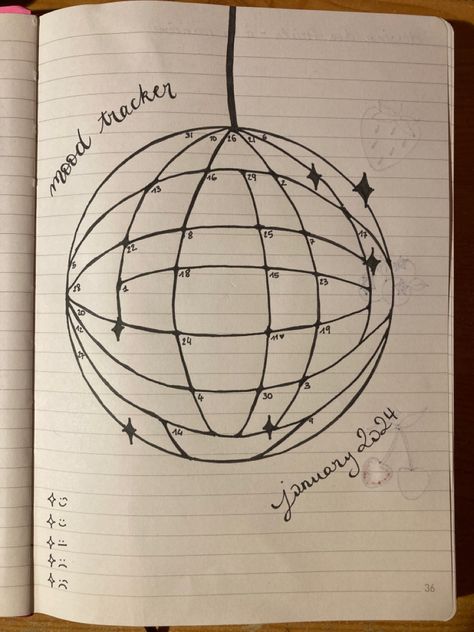 mood tracker
31 10 26 21 6
13 16 29 2
5 22 8 25 7 17
28 1 18 15 23
20 24 11♥ 19
12
27 4 30 3
14 9
january 2024
✧ :D
✧ :)
✧ :|
✧ :(
✧ :(
36